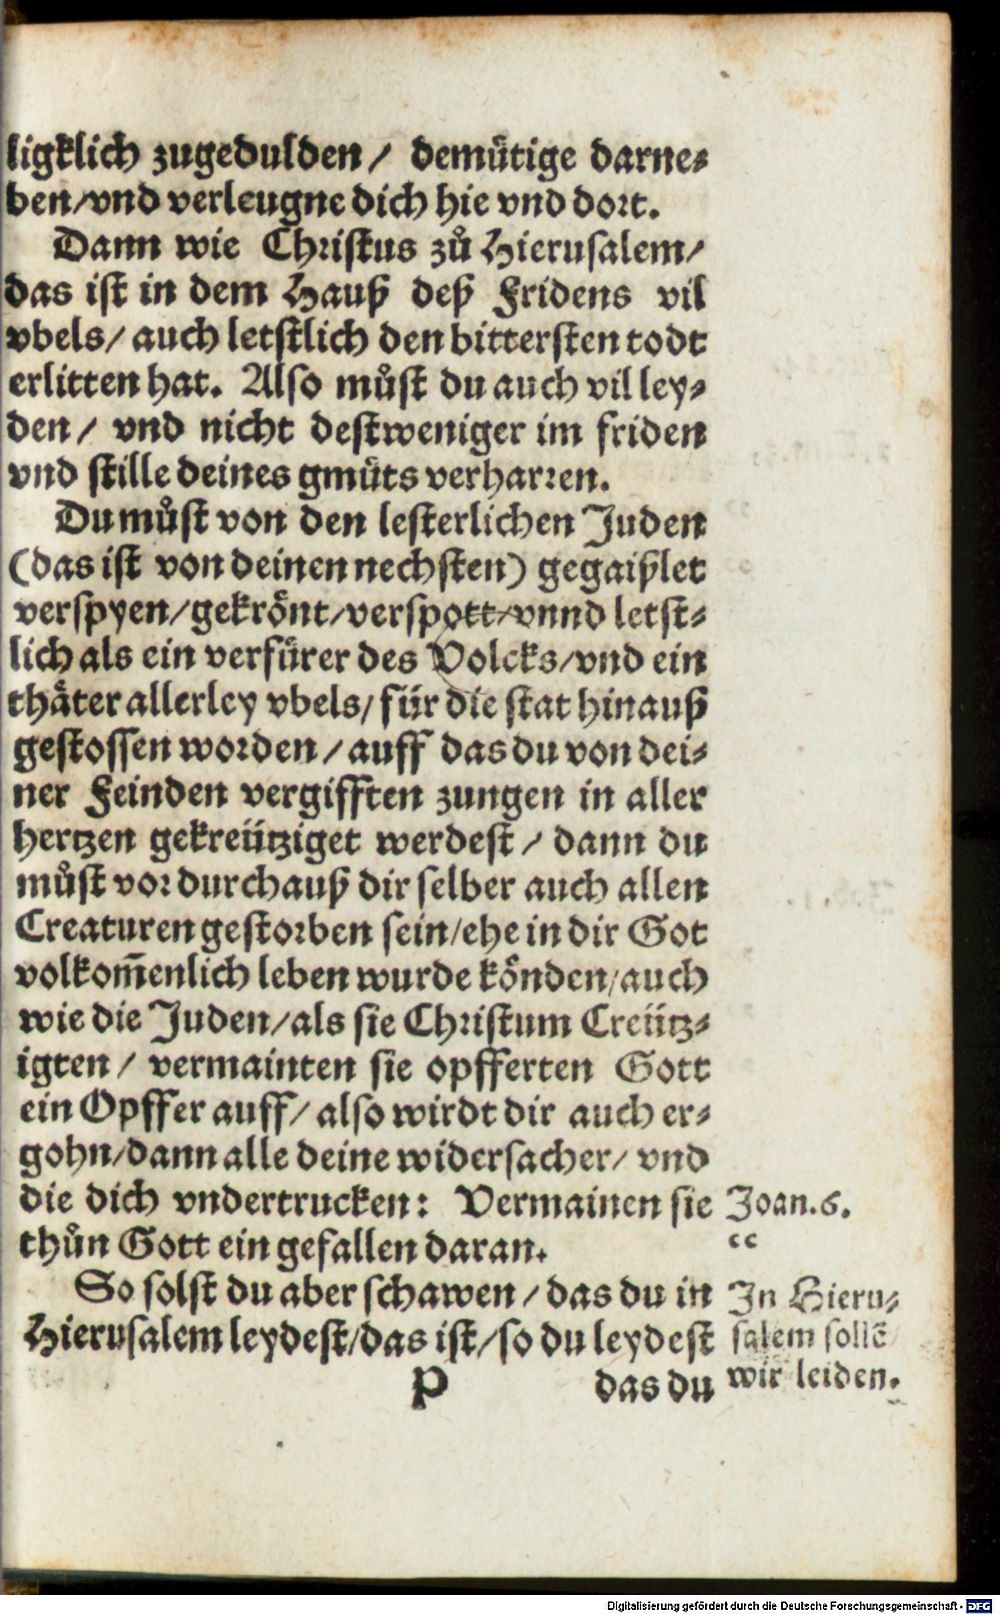 ligklich zugedulden / demütige darne⸗
ben/vnd verleugne dich hie vnd dort.
Dann wie Christus zů Hierusalem/
das ist in dem Hauß deß Fridens vil
vbels/ auch letstlich den bittersten todt
erlitten hat. Also můst du auch vil ley⸗
den / vnd nicht destweniger im friden
vnd stille deines gmüts verharren.
Du můst von den lesterlichen Juden
(das ist von deinen nechsten) gegaißlet
verspyen/gekrönt/verspott/vnnd letst⸗
lich als ein verfürer des Volcks/vnd ein
thäter allerley vbels/ für die stat hinauß
gestossen worden / auff das du von dei⸗
ner Feinden vergifften zungen in aller
hertzen gekreütziget werdest / dann du
můst vor durchauß dir selber auch allen
Creaturen gestorben sein/ehe in dir Got
volkom̃enlich leben wurde könden/auch
wie die Juden/als sie Christum Creütz⸗
igten / vermainten sie opfferten Gott
ein Opffer auff/ also wirdt dir auch er⸗
gohn/dann alle deine widersacher/ vnd
die dich vndertrucken: Vermainen sie
thůn Gott ein gefallen daran.
Joan.6.
cc
So solst du aber schawen / das du in
Hierusalem leydest/das ist/so du leydest
In Hieru⸗
salem sollẽ
wir leiden.
P das du
Digitalisierung gefördert durch die Deutsche Forschungsgemeinschaft - DFG